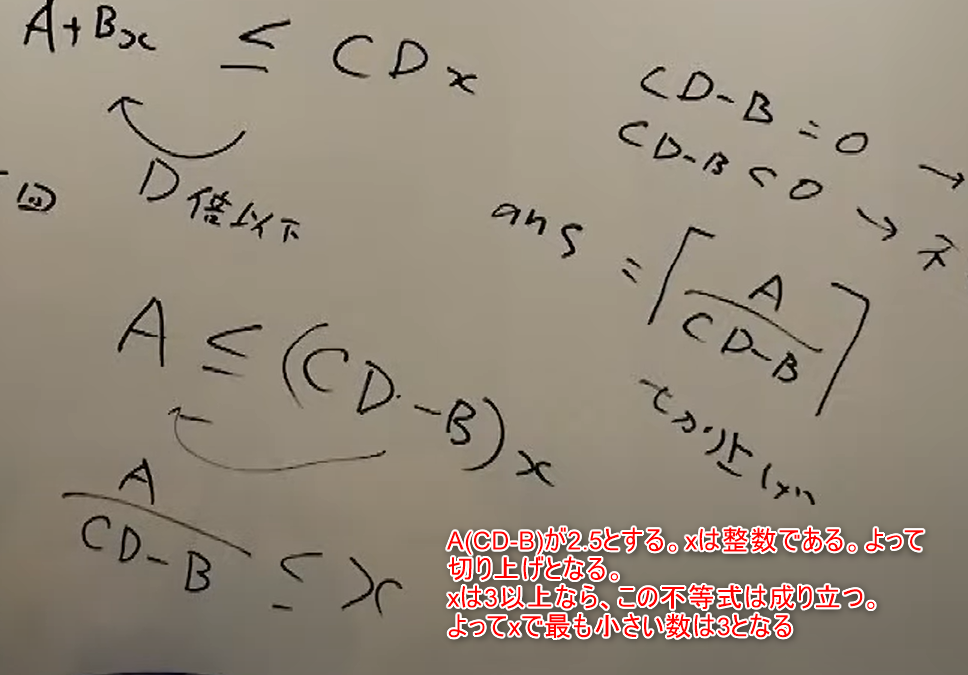 A+Bx ≤ CDx
D倍以下
回
A ≤ (CD-B)x
A/CD-B ≤ x
CD-B=0 →
CD-B<0 →
ans = ⌈A/CD-B⌉
A(CD-B)が2.5とする。xは整数である。よって
切り上げとなる。
xは3以上なら、この不等式は成り立つ。
よってxで最も小さい数は3となる